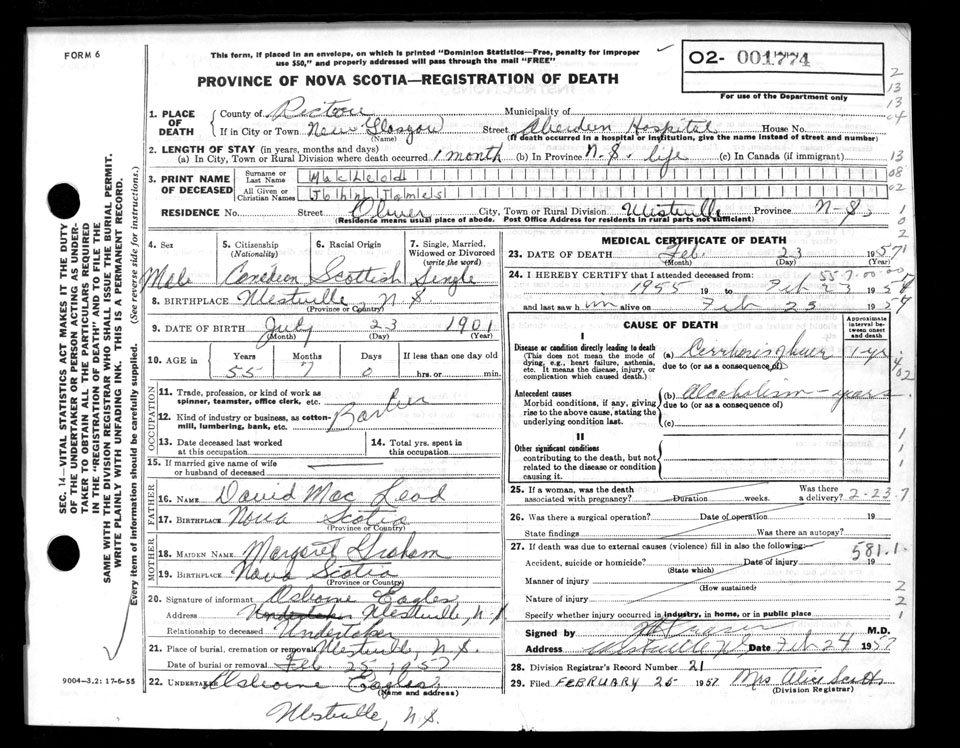 FORM 6
This form, if placed in an envelope, on which is printed "Dominion Statistics—Free, penalty for improper
use $50," and properly addressed will pass through the mail "FREE"
02- 001774
For use of the Department only
PROVINCE OF NOVA SCOTIA—REGISTRATION OF DEATH
1. PLACE OF DEATH
County of Pictou Municipality of
If in City or Town New Glasgow Street Aberdeen Hospital House No.
(Name) (If death occurred in a hospital or institution, give the name instead of street and number)
2. LENGTH OF STAY (in years, months and days)
(a) In City, Town or Rural Division where death occurred 1 month (b) In Province N.S. life (c) In Canada (if immigrant)
3. PRINT NAME OF DECEASED
Surname or Last Name MacLeod
All Given or Christian Names John James
RESIDENCE No. Street Oliver City, Town or Rural Division Westville Province N-S.
(Residence means usual place of abode. Post Office Address for residents in rural parts not sufficient)
4. Sex 5. Citizenship (Nationality) 6. Racial Origin 7. Single, Married, Widowed or Divorced (write the word)
Male Canadian Scottish Single
8. BIRTHPLACE Westville, N.S.
(Province or Country)
9. DATE OF BIRTH July 23 1901
(Month) (Day) (Year)
10. AGE in Years Months Days If less than one day old
55 7 0 hrs. or min.
OCCUPATION
11. Trade, profession, or kind of work as
spinner, teamster, office clerk, etc.
Barber
12. Kind of industry or business, as cotton-
mill, lumbering, bank, etc.
13. Date deceased last worked
at this occupation
14. Total yrs. spent in
this occupation
15. If married give name of wife
or husband of deceased
FATHER
16. NAME David Mac Leod
17. BIRTHPLACE Nova Scotia
(Province or Country)
MOTHER
18. MAIDEN NAME Margaret Graham
19. BIRTHPLACE Nova Scotia
(Province or Country)
20. Signature of informant Osborne Eagles
Address Undertaker Westville, N-S
Relationship to deceased Undertaker
21. Place of burial, cremation or removal Westville, N.S.
Date of burial or removal Feb 25 1957
22. UNDERTAKER Osborne Eagles
(Name and address)
Westville, N.S.
MEDICAL CERTIFICATE OF DEATH
23. DATE OF DEATH Feb. 23 1957
(Month) (Day)
24. I HEREBY CERTIFY that I attended deceased from:
557.00.00
1955 19 to Feb 23 1957
and last saw h im alive on Feb 23 1957
CAUSE OF DEATH
Approximate interval between onset and death
I
Disease or condition directly leading to death
(This does not mean the mode of
dying, e.g., heart failure, asthenia,
etc. It means the disease, injury, or
complication which caused death.)
(a) Cirrhosis liver 1 yr
due to (or as a consequence of)
Antecedent causes
Morbid conditions, if any, giving
rise to the above cause, stating the
underlying condition last.
(b) Alcoholism - years
due to (or as a consequence of)
(c)
II
Other significant conditions
contributing to the death, but not
related to the disease or condition
causing it.
25. If a woman, was the death
associated with pregnancy? Duration weeks. Was there
a delivery? 2-23.7
26. Was there a surgical operation? Date of operation 19
State findings Was there an autopsy?
27. If death was due to external causes (violence) fill in also the following:
581.1
Accident, suicide or homicide? Date of injury 19
(State which)
Manner of injury
(How sustained)
Nature of injury
Specify whether injury occurred in industry, in home, or in public place
Signed by M.D.
Address Westville N.S. Date Feb 24 1957
28. Division Registrar's Record Number 21
29. Filed FEBRUARY 25 1957 Mrs Alice Scott
(Division Registrar)
SEC. 14—VITAL STATISTICS ACT MAKES IT THE DUTY
OF THE UNDERTAKER OR PERSON ACTING AS UNDER-
TAKER TO OBTAIN ALL THE PARTICULARS REQUIRED
IN THE "REGISTRATION OF DEATH" AND TO FILE THE
SAME WITH THE DIVISION REGISTRAR WHO SHALL ISSUE THE BURIAL PERMIT.
WRITE PLAINLY WITH UNFADING INK. THIS IS A PERMANENT RECORD.
Every item of information should be carefully supplied. (See reverse side for instructions.)
9004—3.2: 17-6-55
2
13
13
04
13
08
02
1
0
2
1
1
1
1
2
2
1